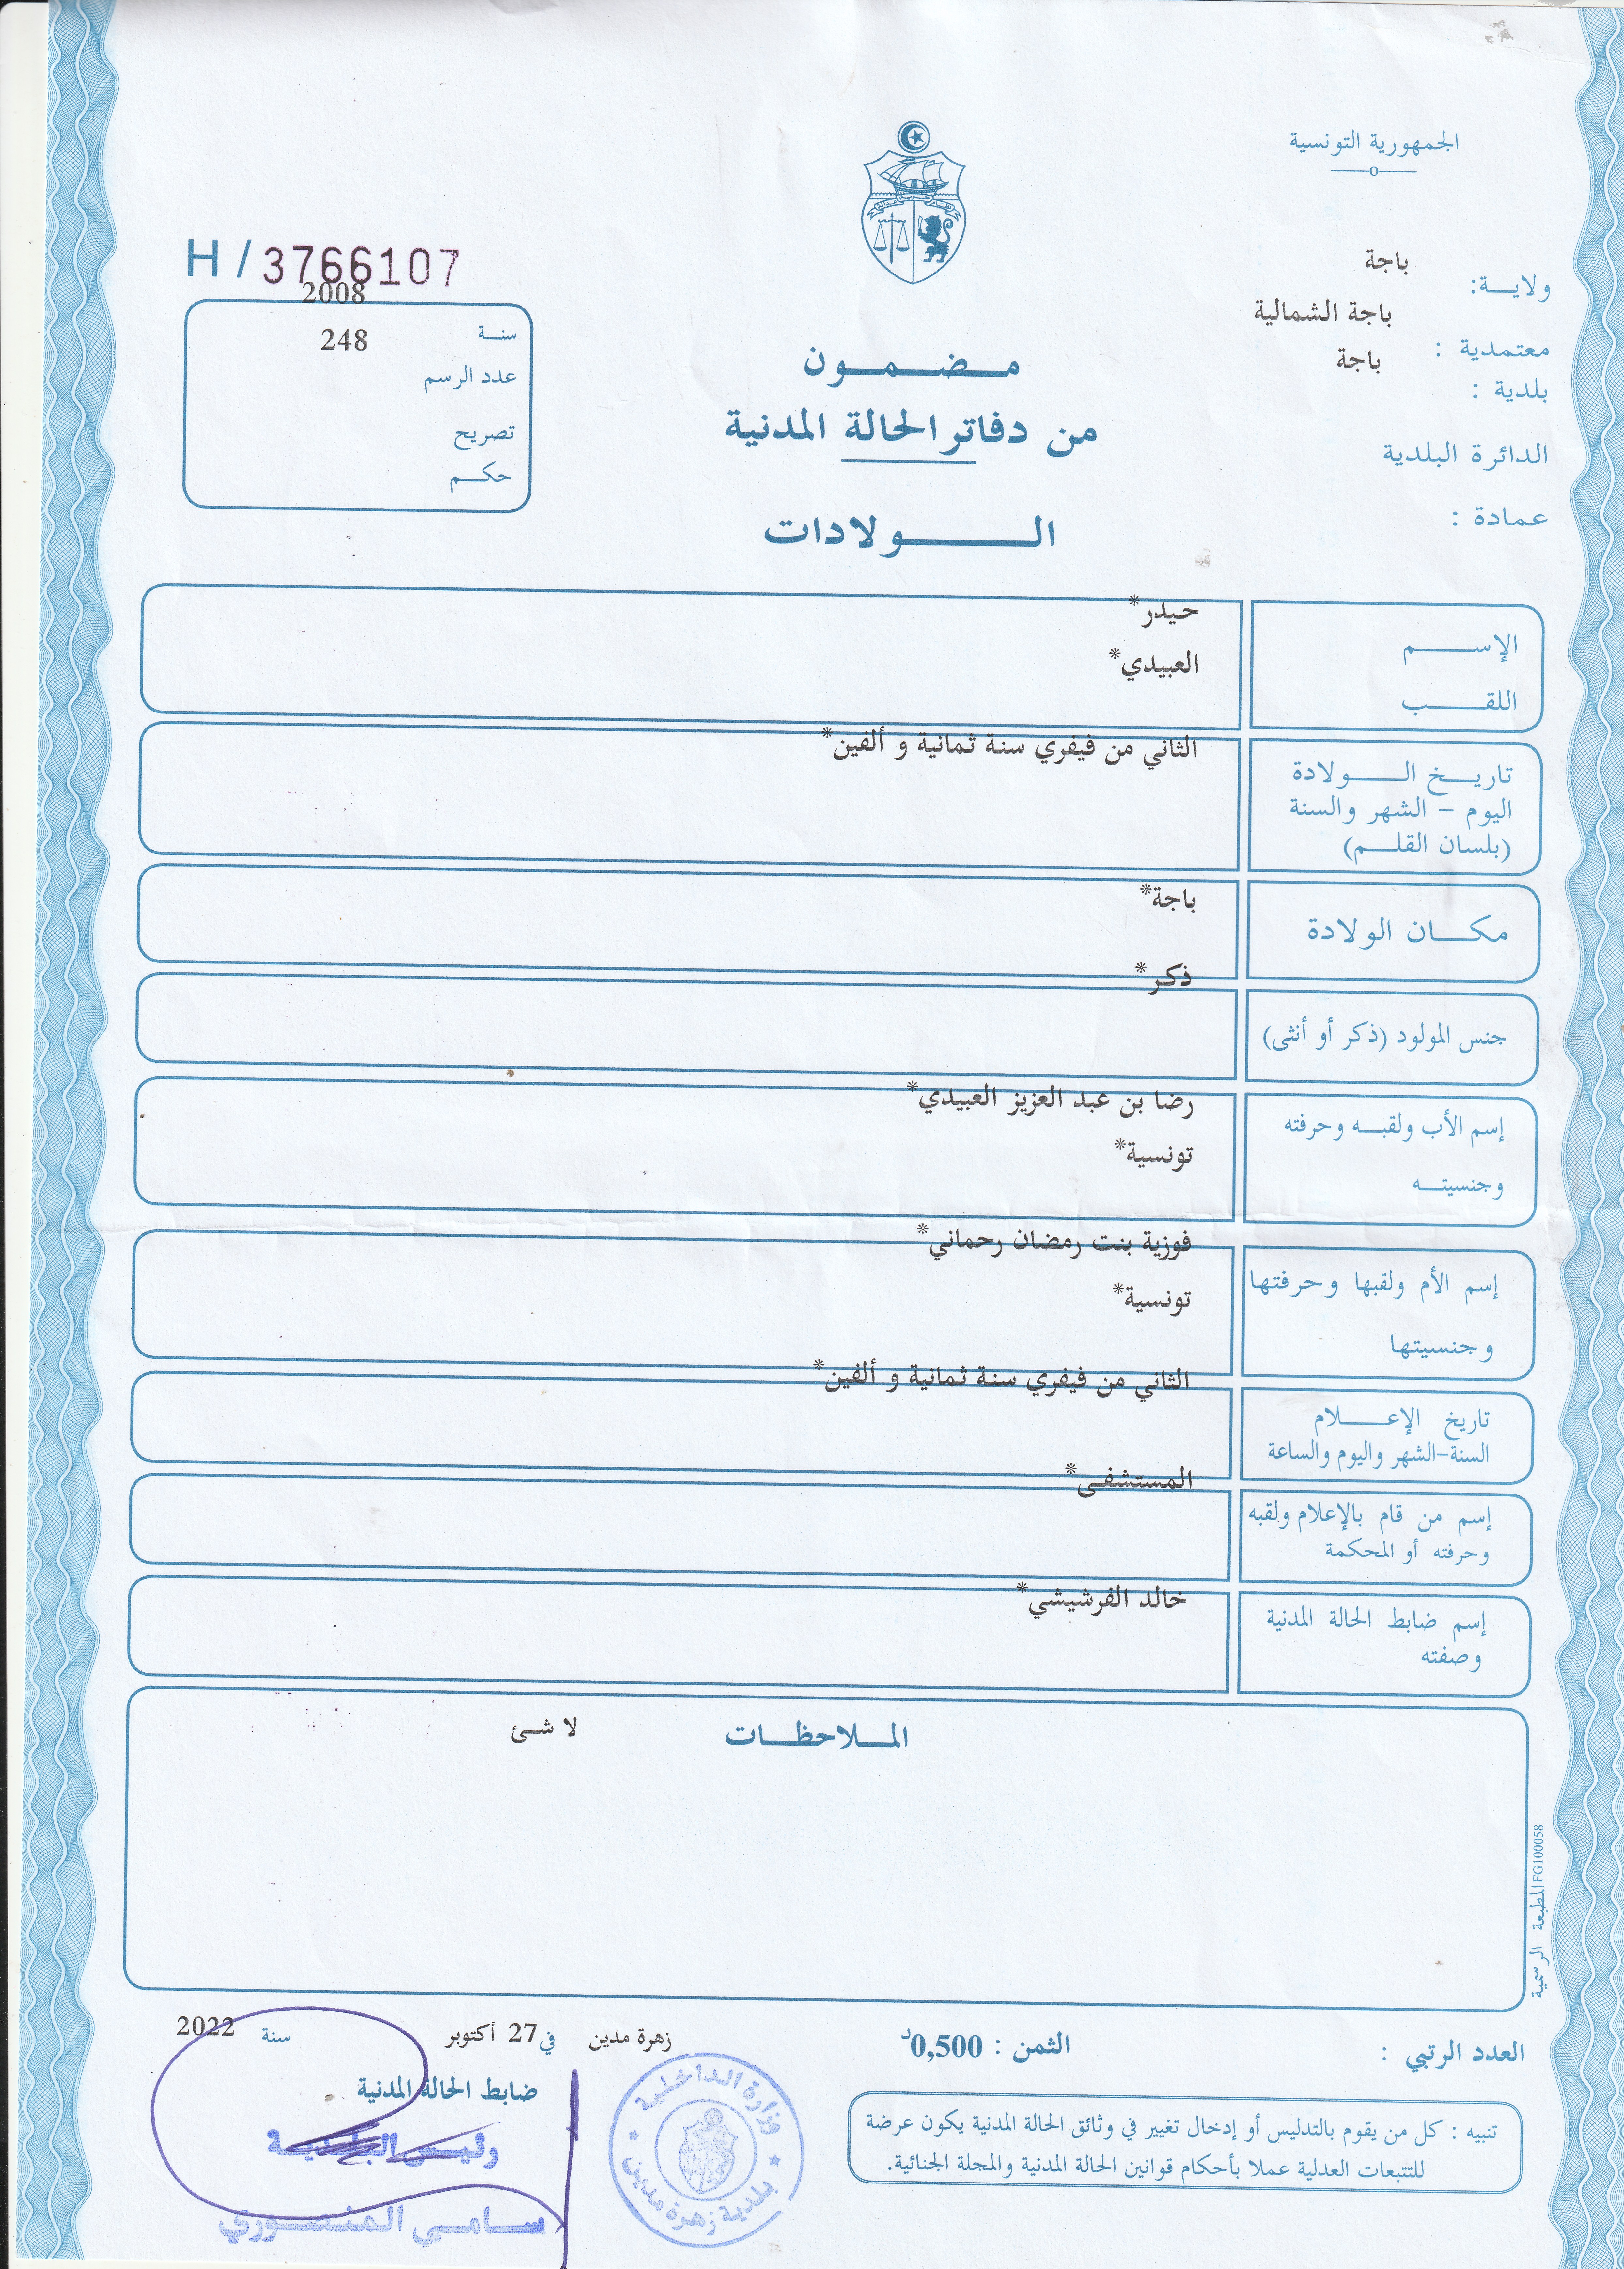 الجمهورية التونسية
ولايـــة: باجة
معتمدية : باجة الشمالية
بلدية : باجة
الدائرة البلدية
عمادة :
H / 3766107
سنــة 2008
عدد الرسم 248
تصريح
حكـــم
مـــضـــمـــون
من دفاتر الحالة المدنية
الــــــولادات
الإســـــم حيدر*
اللقـــــب العبيدي*
تاريـــخ الـــــولادة الثاني من فيفري سنة ثمانية و ألفين*
اليوم – الشهر والسنة
(بلسان القلـــم)
مكـــان الولادة باجة*
جنس المولود (ذكر أو أنثى) ذكر*
إسم الأب ولقبـــه وحرفته رضا بن عبد العزيز العبيدي*
وجنسيتـــه تونسية*
إسم الأم ولقبها وحرفتها فوزية بنت رمضان رحماني*
وجنسيتها تونسية*
تاريخ الإعـــــلام الثاني من فيفري سنة ثمانية و ألفين*
السنة–الشهر واليوم والساعة
إسم من قام بالإعلام ولقبه المستشفى*
وحرفته أو المحكمة
إسم ضابط الحالة المدنية خالد الفرشيشي*
وصفته
المــلاحظـــات لا شئ
المطبعة الرسمية FG100058
العدد الرتبي :
الثمن : 0,500د
زهرة مدين في 27 أكتوبر سنة 2022
ضابط الحالة المدنية
رئيس البلدية
سامي المنصوري
وزارة الداخلية
بلدية زهرة مدين
تنبيه : كل من يقوم بالتدليس أو إدخال تغيير في وثائق الحالة المدنية يكون عرضة
للتتبعات العدلية عملا بأحكام قوانين الحالة المدنية والمجلة الجنائية.